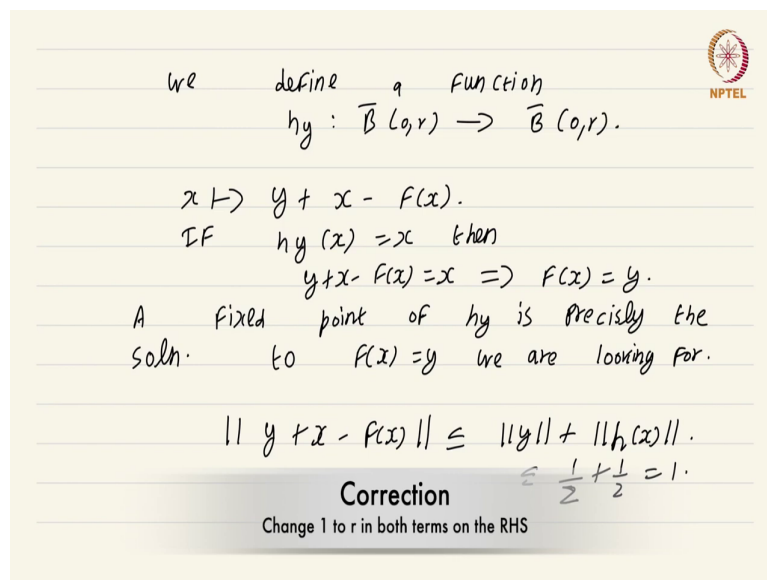 we define a function
hy : B̅ (0,r) —> B̅ (0,r).
NPTEL
x ↦ y + x - F(x).
IF hy (x) = x then
y+x- F(x) = x => F(x) = y.
A Fixed point of hy is precisly the
soln. to F(x) = y we are looking for.
|| y +x - F(x) || ≤ ||y|| + ||h(x)||.
≤ 1/2 + 1/2 = 1.
Correction
Change 1 to r in both terms on the RHS